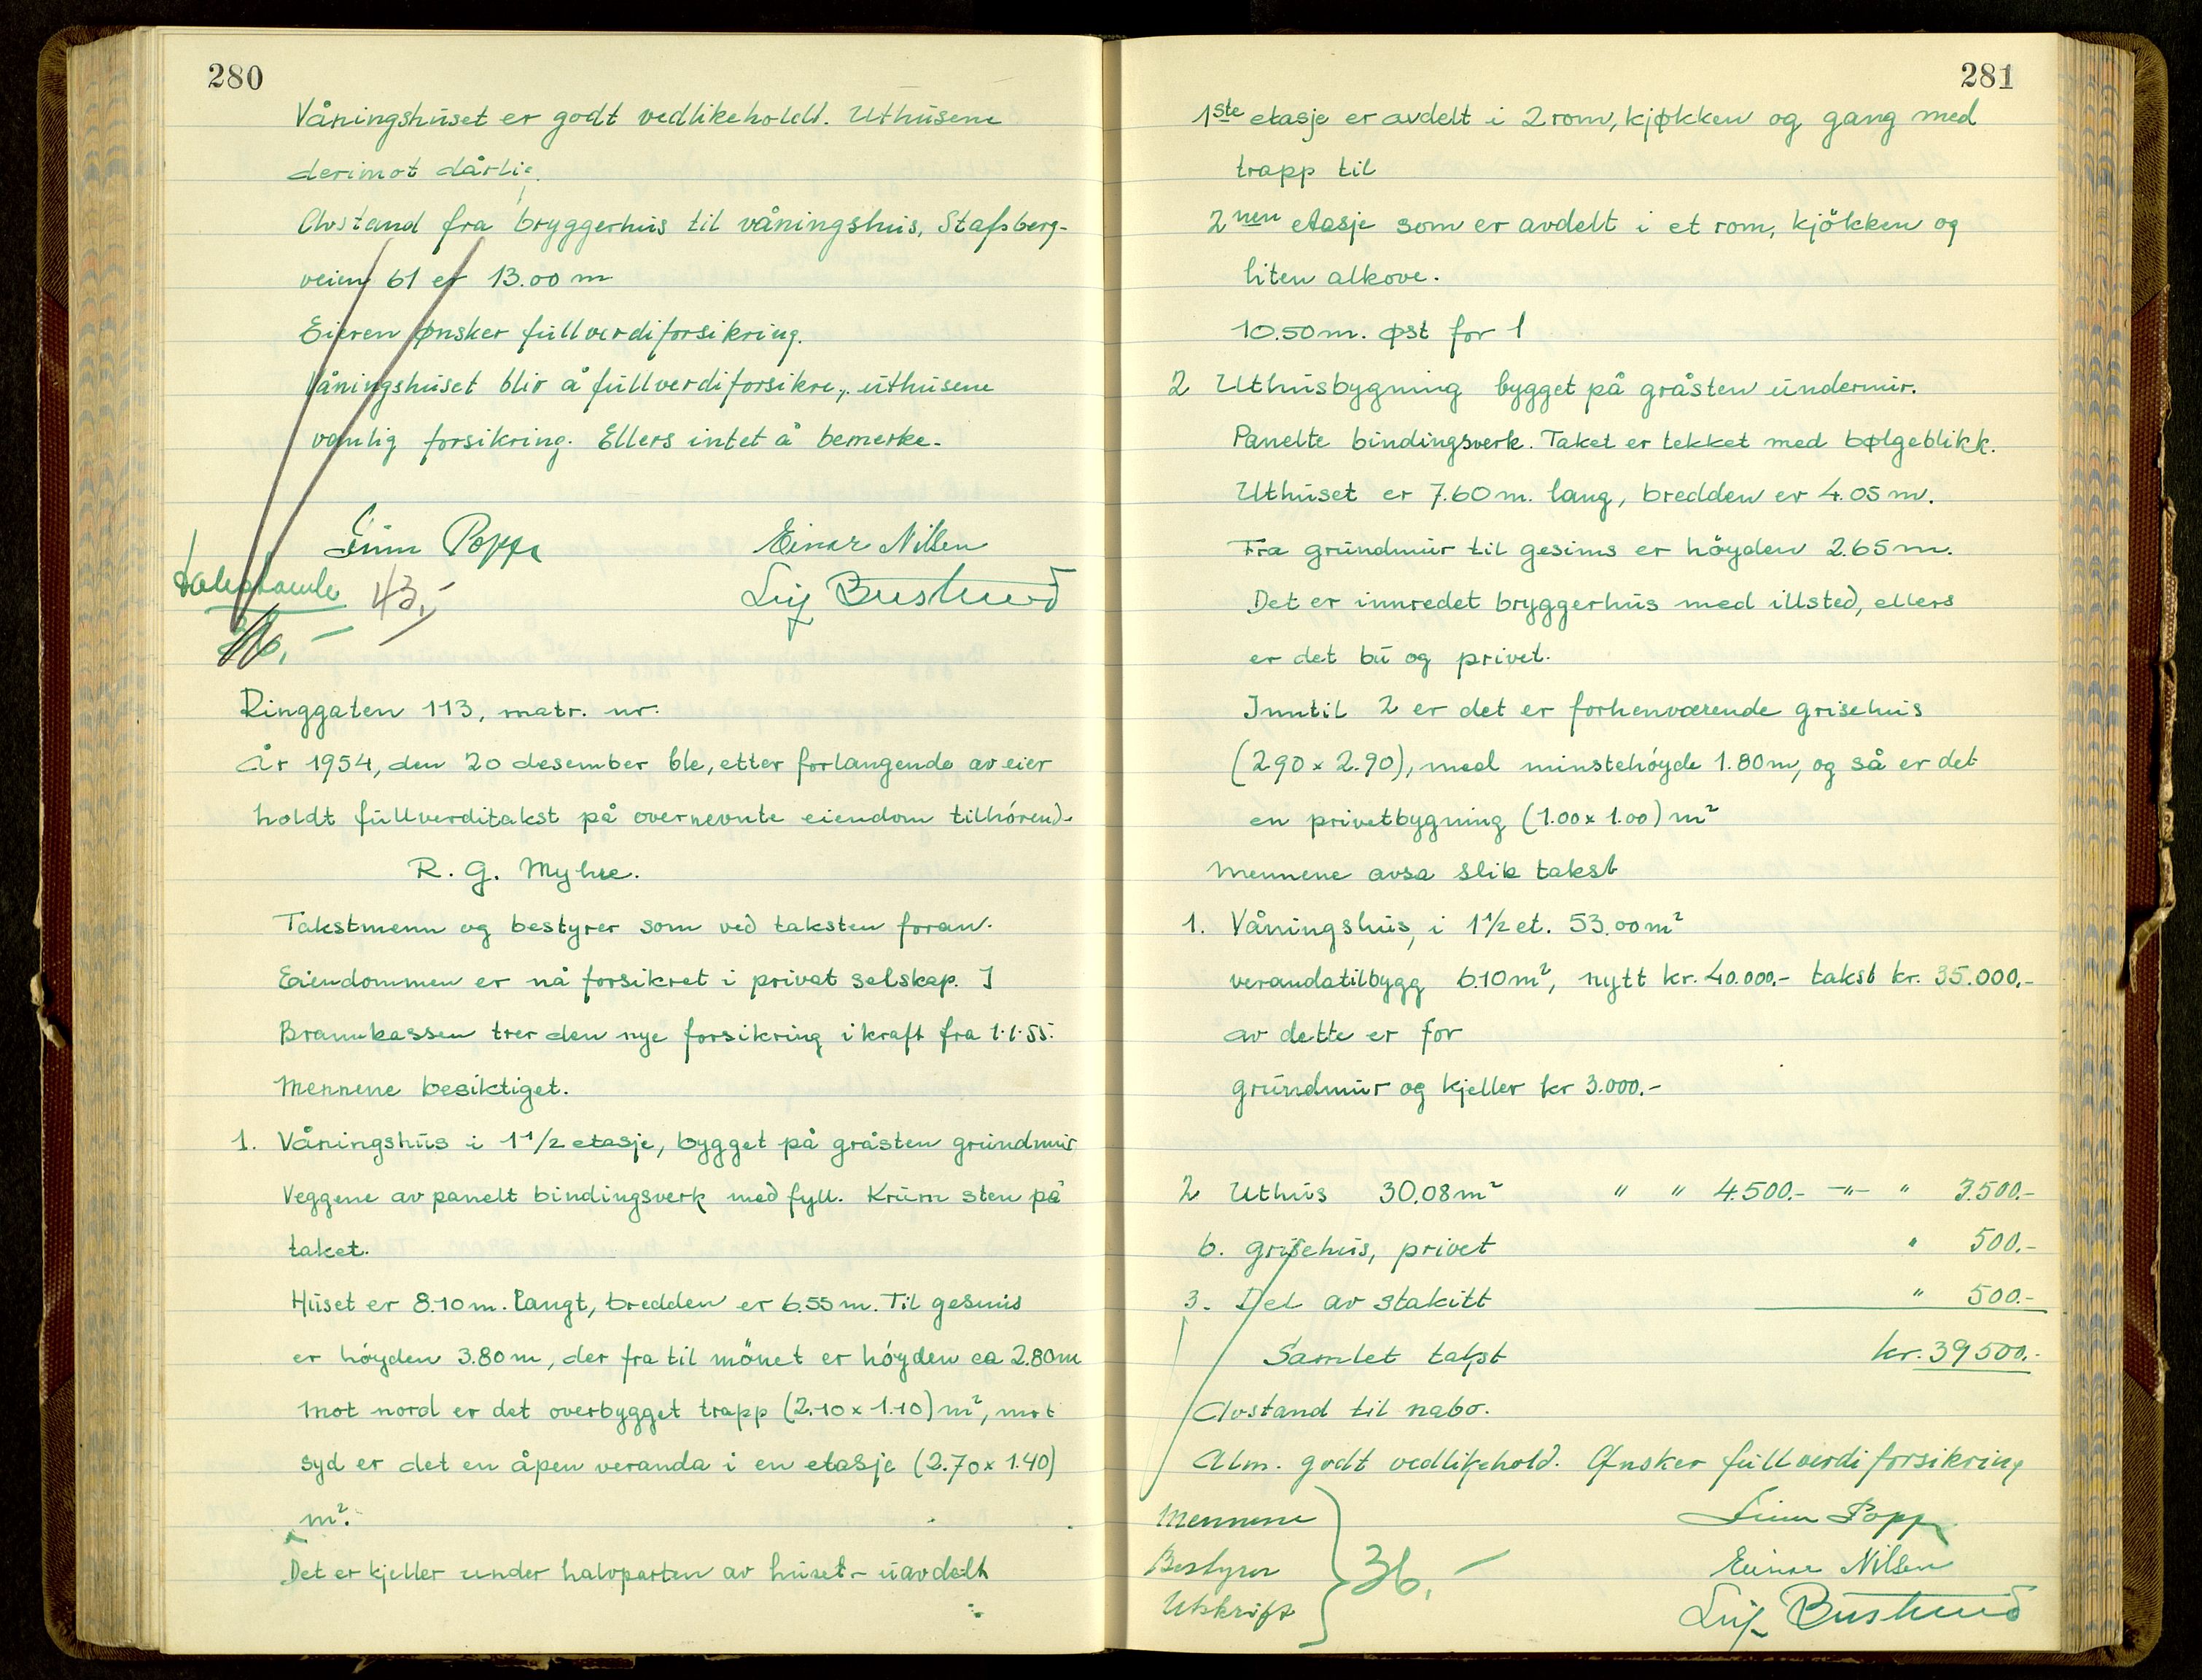 280
Våningshuset er godt vedlikeholdt. Uthusene
derimot dårlig.
Avstand fra bryggerhus til våningshus, Stafsberg-
veien 61 er 13.00 m
Eieren ønsker fullverdiforsikring.
Våningshuset blir å fullverdiforsikre, uthusene
vanlig forsikring. Ellers intet å bemerke.
Popp Einar Nilsen
43,-
Ringgaten 113, matr. nr.
År 1954, den 20 desember ble, etter forlangende av eier
holdt fullverditakst på overnevnte eiendom tilhørende
R. G. Myhre.
Takstmenn og bestyrer som ved taksten foran.
Eiendommen er nå forsikret i privat selskap. I
Brannkassen trer den nye forsikring i kraft fra 1.1.55.
Mennene besiktiget.
1. Våningshus i 1 1/2 etasje, bygget på gråsten grundmur
Veggene av panelt bindingsverk med fyll. Krum sten på
taket.
Huset er 8.10 m. langt, bredden er 6.55 m. Til gesims
er høyden 3.80 m, der fra til mönet er høyden ca 2.80 m
Mot nord er det overbygget trapp (2.10 x 1.10) m², mot
syd er det en åpen veranda i en etasje (2.70 x 1.40)
m².
Det er kjeller under halvparten av huset - uavdelt
281
1ste etasje er avdelt i 2 rom, kjøkken og gang med
trapp til
2nen etasje som er avdelt i et rom, kjökken og
liten alkove.
10.50 m. øst for 1
2 Uthusbygning bygget på gråsten undermur.
Panelte bindingsverk. Taket er tekket med bølgeblikk.
Uthuset er 7.60 m. lang, bredden er 4.05 m.
Fra grundmur til gesims er höyden 2.65 m.
Det er innredet bryggerhus med illsted, ellers
er det bu og privet.
Inntil 2 er det er forhenværende grisehus
(2.90 x 2.90), med minstehøyde 1.80 m, og så er det
en privetbygning (1.00 x 1.00) m²
Mennene avsa slik takst
1. Våningshus, i 1 1/2 et. 53.00 m²
verandatilbygg 6.10 m², nytt kr. 40.000,- takst kr. 35.000,-
av dette er for
grundmur og kjeller kr 3.000.-
2 Uthus 30.08 m² " " 4.500.- -"- " 3.500.-
b. grisehus, privet " 500.-
3. Del av stakitt " 500.-
Samlet takst kr. 39500.-
Avstand til nabo.
Alm. godt vedlikehold. Ønsker fullverdiforsikring
Mennene
Bestyrer
Utskrift
36,-
Popp
Einar Nilsen